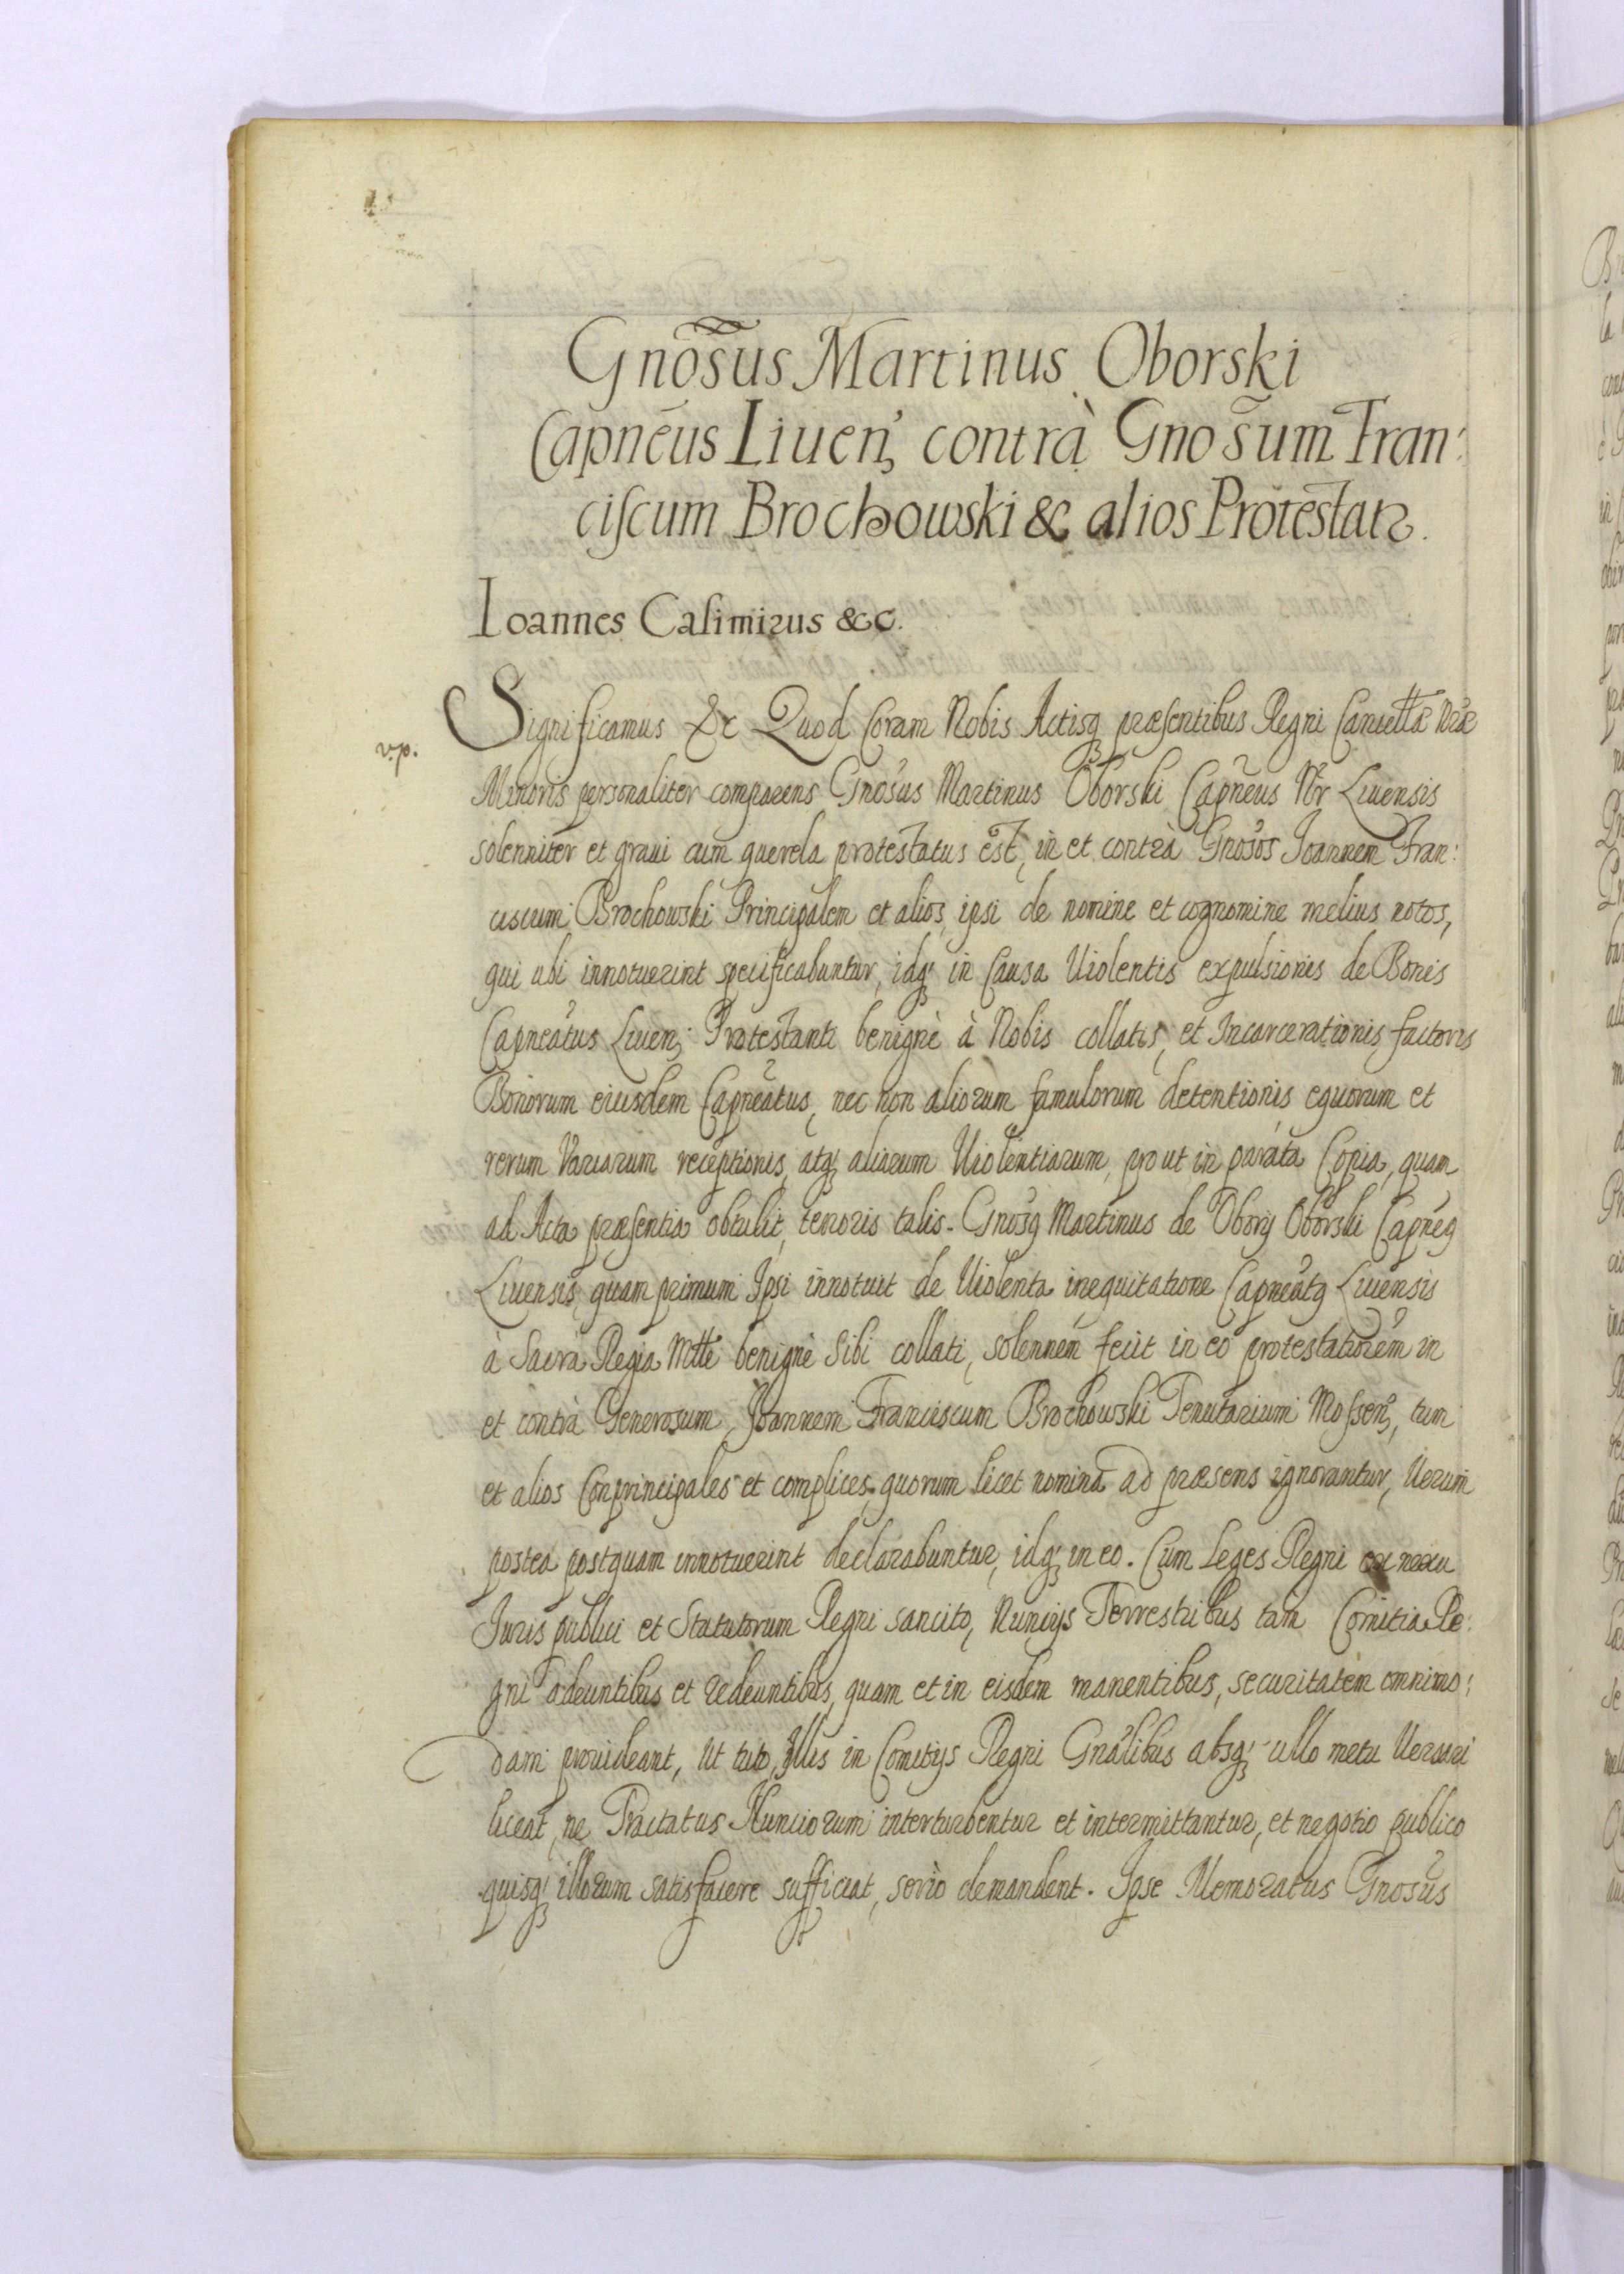 Gnõsus Martinus Oborski
Capnẽus Liuen: contrà Gnosum Fran:
ciſcum Brochowski & alios Protestatr.
Ioannes Casimirus &c.
v.p.
Significamus &c Quod Coram Nobis Actisq; præsentibus Regni Cancellæ Nræ
Minoris personaliter comparens Gnosus Martinus Oborski Capneus Nr Liuensis
solenniter et graui cum querela protestatus est, in et contrà Gnosos Joannem Fran:
ciscum Brochowski Principalem et alios ipsi de nomine et cognomine melius notos,
qui ubi innotuerint specificabuntur, idq; in Causa Uiolentis expulsionis de Bonis
Capneatus Liuen: Protestanti benignè à Nobis collatis, et Incarcerationis factoris
Bonorum eiusdem Capneatus, nec non aliorum famulorum detentionis equorum et
rerum Variarum receptionis, atq; aliarum Uiolentiarum, pro ut in parata Copia, quam
ad Acta præsentia obtulit, tenoris talis. Gnosq Martinus de Obory Oborski Capneq
Liuensis, quam primum Ipsi innotuit de Uiolenta inequitatione Capneatq Liuensis
à Sacra Regia Mtte benignè Sibi collati, solennem fecit in eo protestationem in
et contrà Generosum Joannem Franciscum Brochowski Tenutarium Mossen:, tum
et alios Conprincipales et complices, quorum licet nomina ad præsens ignorantur, Uerum
postea postquam innotuerint declarabuntur, idq; in eo. Cum Leges Regni ex nexu
Juris publici et Statutorum Regni sancito, Nuncijs Terrestribus tam Comitia Re:
gni adeuntibus et redeuntibus, quam et in eisdem manentibus, securitatem omnimo:
dam prouideant, Ut tuto Illis in Comitijs Regni Gnãlibus absq; ullo metu Uersari
liceat, ne Tractatus Nunciorum interturbentur et intermittantur, et negotio publico
quisq; illorum satisfacere sufficiat, seriò demandent. Ipse Memoratus Gnosus